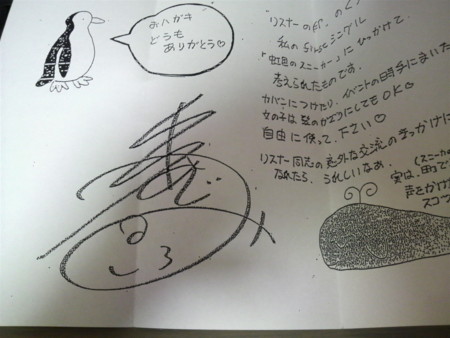 おハガキ
どうも
ありがとう♡
「リスナーの印」の
私の firstシングル
「虹色のスニーカー」にひっかけて
考えられたものです。
カバンにつけたり、イベントの時手にまいた
女の子は髪のかざりにしてもOK♡
自由に使って下さい♡
リスナー同志の意外な交流のきっかけに
なれたら、うれしいなぁ。
(スニーカー
実は、
声をかけ
スコッ